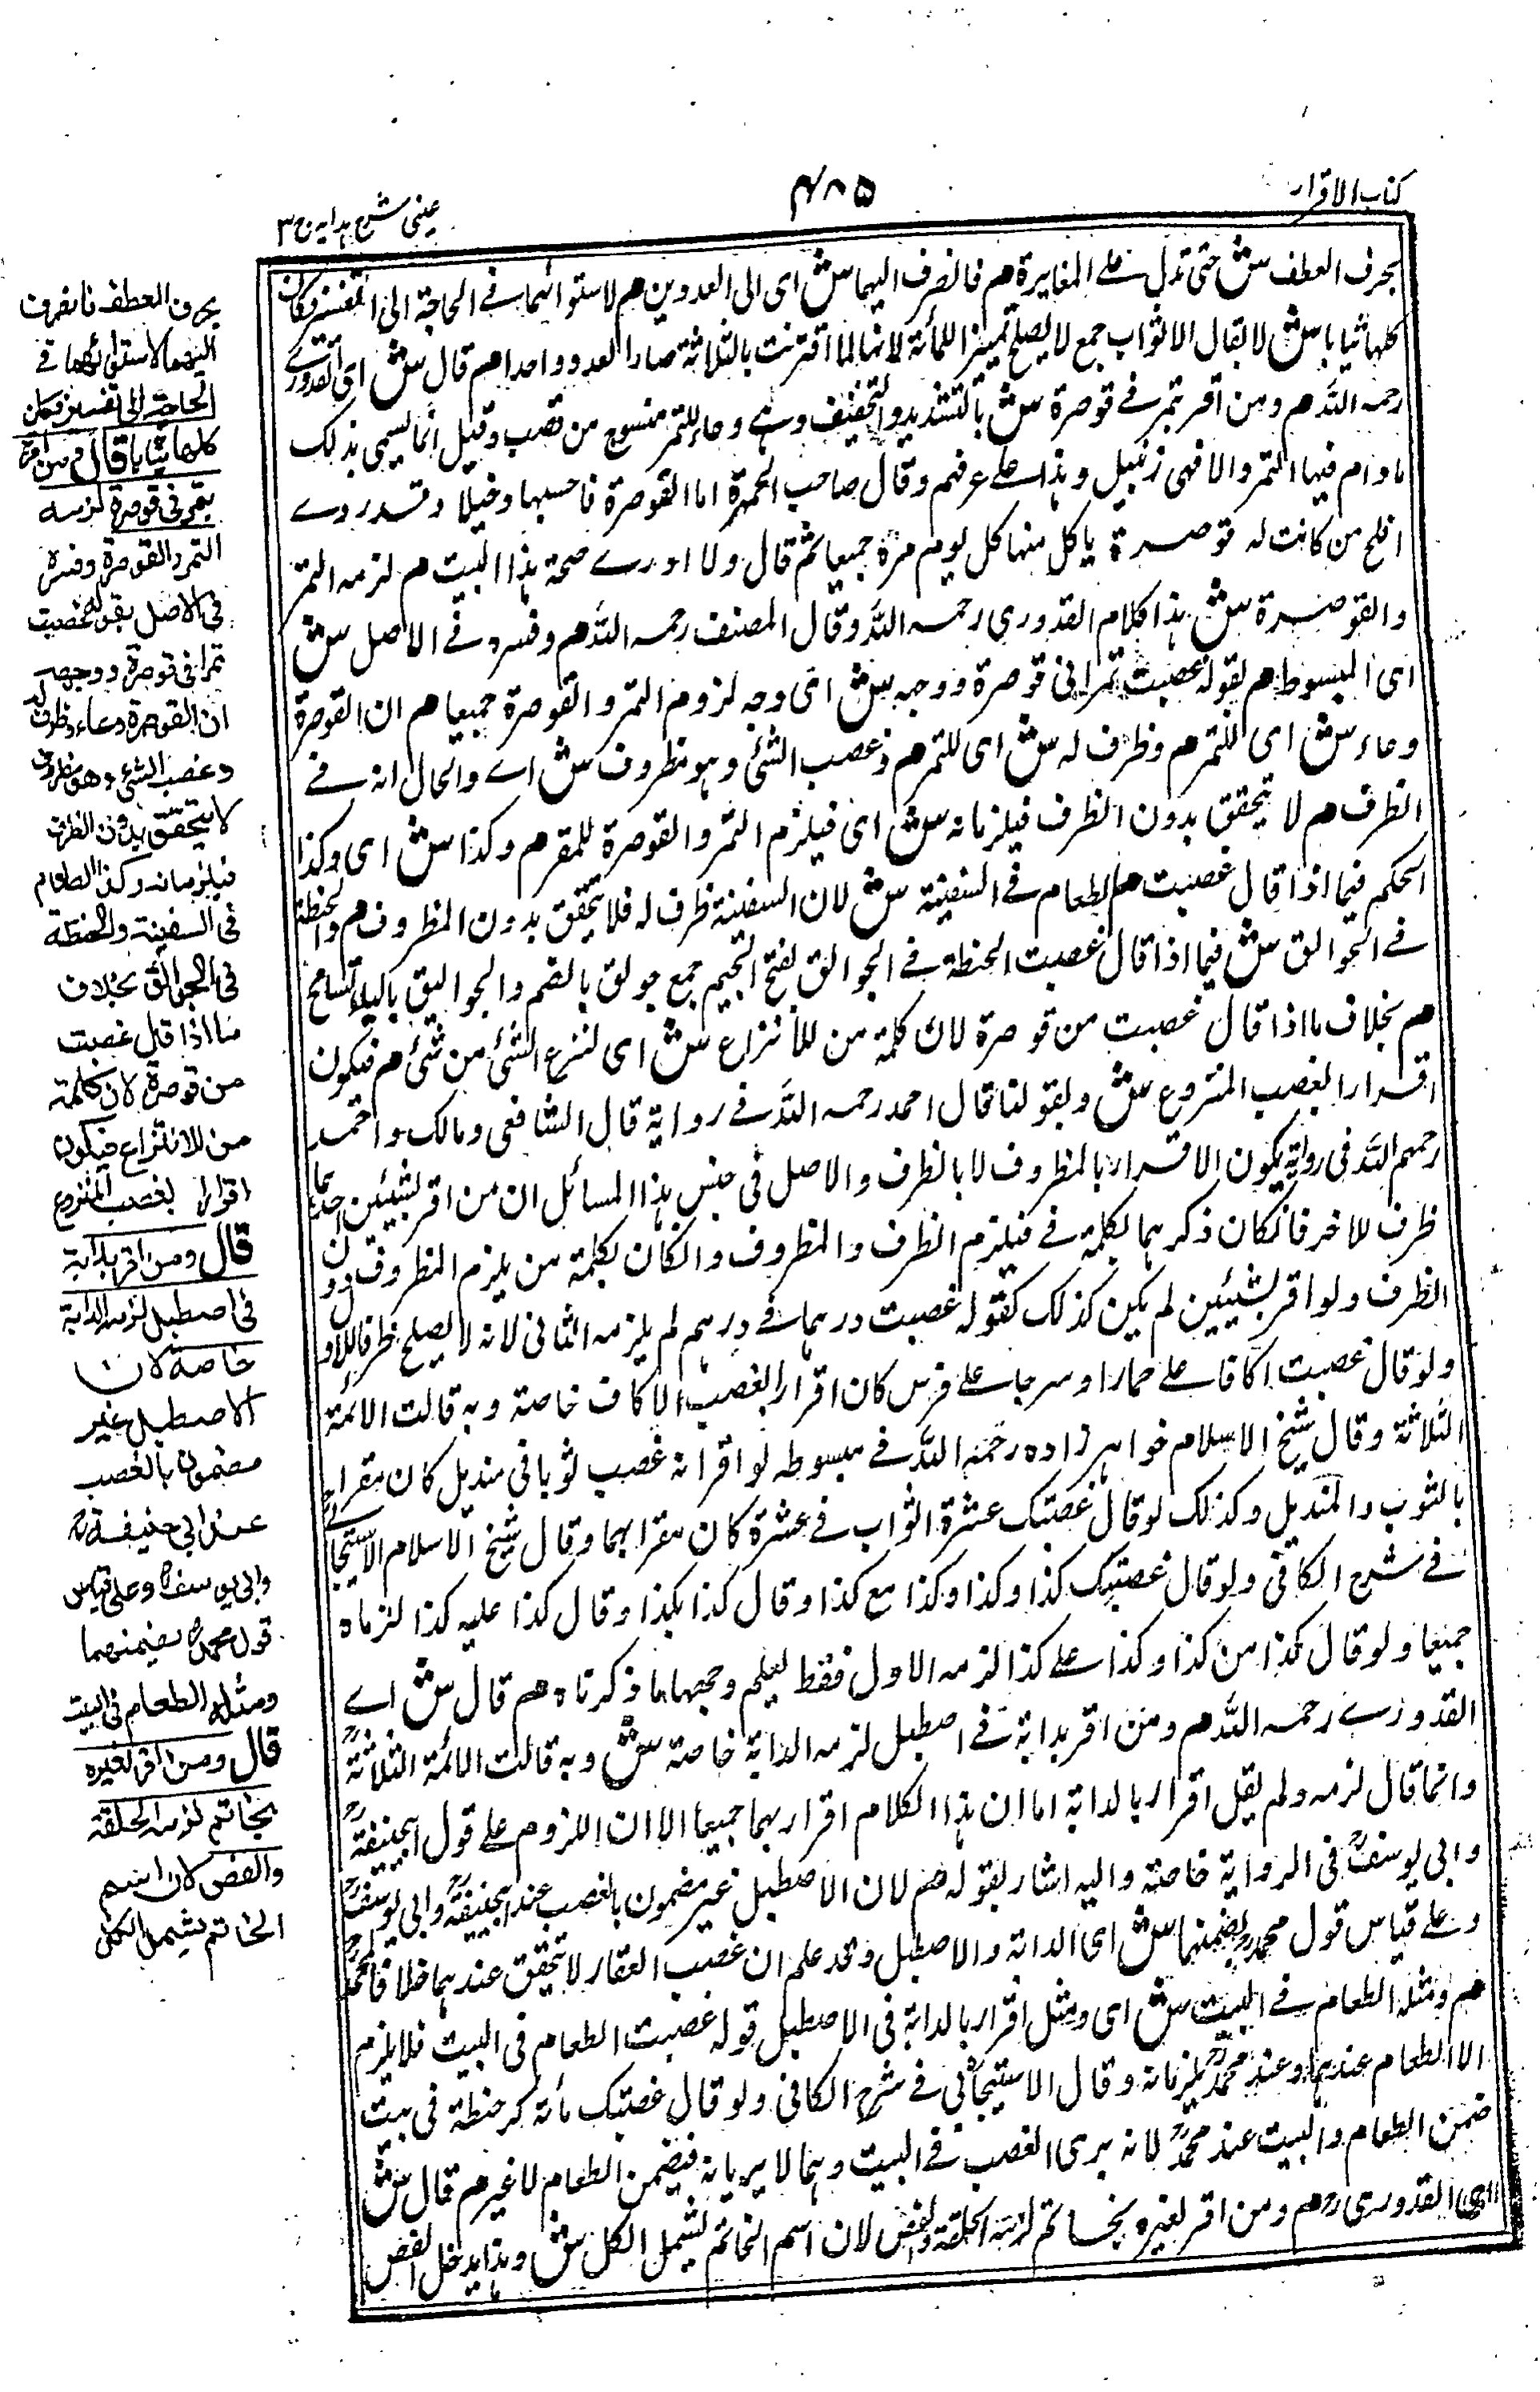 كتاب الاقرار
٤٨٥
عينى شرح هدايه ج ٣
بحرف العطف ش حتى تدل على المغايرة م فانصرف اليهما ش اى الى العددين م لاستوائهما فى الحاجة الى التفسير فكان
كلها ثيابا ش لا يقال الاثواب جمع لا يصلح تميزا للمائة لانها لما اقترنت بالثلاثة صارا العدد واحدا م قال ش اى القدورى
رحمه الله م ومن اقر بتمر فى قوصرة ش بالتشديد والتخفيف وهى وعاء للتمر منسوج من قصب وقيل انما يسمى بذلك
مادام فيها التمر والا فهى زنبيل وهذا على عرفهم وقال صاحب الجمهرة اما القوصرة فاحسبها دخيلا وقد روى
افلح من كانت له قوصرة ياكل منها كل يوم مرة جميعا ثم قال ولا ادرى صحة هذا البيت م لزمه التمر
والقوصرة ش هذا كلام القدورى رحمه الله وقال المصنف رحمه الله م وفسره فى الاصل ش
اى المبسوط م بقوله غصبت تمرا فى قوصرة ووجهه ش اى وجه لزوم التمر والقوصرة جميعا م ان القوصرة
وعاء ش اى للتمر م وظرف له ش اى للتمر م وغصب الشئ وهو مظروف ش اى والحال انه فى
الظرف م لا يتحقق بدون الظرف فيلزمانه ش اى فيلزم التمر والقوصرة للمقر م وكذا ش اى وكذا
الحكم فيما اذا قال غصبت م الطعام فى السفينة ش لان السفينة ظرف له فلا يتحقق بدون المظروف م والحنطة
فى الجوالق ش فيما اذا قال غصبت الحنطة فى الجوالق بفتح الجيم جمع جولق بالضم والجواليق بالياء تسامح
م بخلاف ما اذا قال غصبت من قوصرة لان كلمة من للانتزاع ش اى لنزع الشئ من شئ م فيكون
اقرارا بغصب المنزوع ش وبقولنا قال احمد رحمه الله فى رواية قال الشافعى ومالك واحمد
رحمهم الله فى رواية يكون الاقرار بالمظروف لا بالظرف والاصل فى جنس هذا المسائل ان من اقر بشيئين احدهما
ظرف للاخر فان كان ذكرهما بكلمة فى فيلزم الظرف والمظروف وان كان بكلمة من يلزم المظروف دون
الظرف ولو اقر بشيئين لم يكن كذلك كقوله غصبت درهما فى درهم لم يلزمه الثانى لانه لا يصلح ظرفا للاول
ولو قال غصبت اكافا على حمار او سرجا على فرس كان اقرارا بغصب الاكاف خاصة وبه قالت الائمة
الثلاثة وقال شيخ الاسلام خواهر زاده رحمه الله فى مبسوطه لو اقر انه غصب ثوبا فى منديل كان مقرا
بالثوب والمنديل وكذلك لو قال غصبتك عشرة اثواب فى عشرة كان مقرا بهما وقال شيخ الاسلام الاسبيجابى
فى شرح الكافى ولو قال غصبتك كذا وكذا وكذا مع كذا وقال كذا بكذا وقال كذا عليه كذا لزماه
جميعا ولو قال كذا من كذا وكذا على كذا لزمه الاول فقط ليعلم وجهها ما ذكرناه م قال ش اى
القدورى رحمه الله م ومن اقر بدابة فى اصطبل لزمه الدابة خاصة ش وبه قالت الائمة الثلاثة
وانما قال لزمه ولم يقل اقرار بالدابة اما ان هذا الكلام اقرار بهما جميعا الا ان اللزوم على قول ابيحنيفة
وابى يوسف فى الرواية خاصة واليه اشار بقوله م لان الاصطبل غير مضمون بالغصب عند ابيحنيفة وابى يوسف
وعلى قياس قول محمد يضمنهما ش اى الدابة والاصطبل وقد علم ان غصب العقار لا يتحقق عندهما خلافا لمحمد
م ومثله الطعام فى البيت ش اى ومثل اقرار بالدابة فى الاصطبل قوله غصبت الطعام فى البيت فلا يلزم
الا الطعام عندهما وعند محمد يلزمانه وقال الاسبيجابى فى شرح الكافى ولو قال غصبتك مائة كر حنطة فى بيت
ضمن الطعام والبيت عند محمد لانه يرى الغصب فى البيت وهما لا يريانه فيضمن الطعام لا غير م قال ش
اى القدورى م ومن اقر لغيره بخاتم لزمه الحلقة والفص لان اسم الخاتم يشمل الكل ش وبهذا يدخل الفص
بحرف العطف فانصرف
اليهما لاستوائهما فى
الحاجة الى تفسير فكان
كلها ثيابا قال ومن اقر
بتمر فى قوصرة لزمه
التمر والقوصرة وفسره
فى الاصل بقوله غصبت
تمرا فى قوصرة ووجهه
ان القوصرة وعاء وظرف له
وغصب الشئ وهو مظروف
لا يتحقق بدون الظرف
فيلزمانه وكذا الطعام
فى السفينة والحنطة
فى الجوالق بخلاف
ما اذا قال غصبت
من قوصرة لان كلمة
من للانتزاع فيكون
اقرارا بغصب المنزوع
قال ومن اقر بدابة
فى اصطبل لزمه الدابة
خاصة لان
الاصطبل غير
مضمون بالغصب
عند ابى حنيفة
وابى يوسف وعلى قياس
قول محمد يضمنهما
ومثله الطعام فى البيت
قال ومن اقر لغيره
بخاتم لزمه الحلقة
والفص لان اسم
الخاتم يشمل الكل